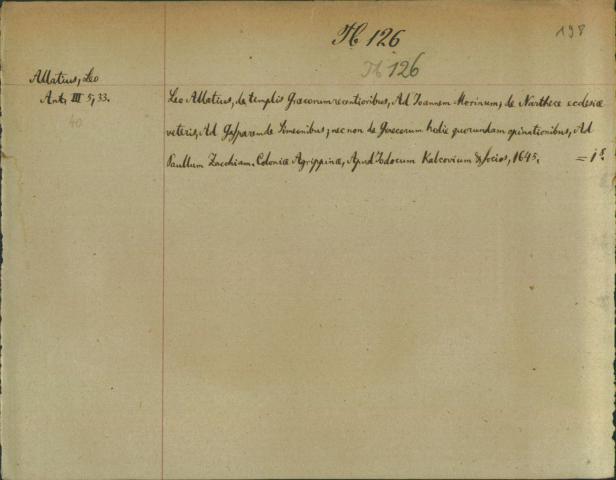 Th 126
198
Th 126
Allatius, Leo
Ant, III 5, 33.
40
Leo Allatius, de templis Graecorum recentioribus, Ad Joannem Morinum, de Narthece ecclesiae
veteris, Ad Gasparem de Simeonibus, nec non de Graecorum hodie quorundam opinationibus, Ad
Paullum Zacchiam. Coloniae Agrippinae, Apud Jodocum Kalcovium & socios, 1645. = 1